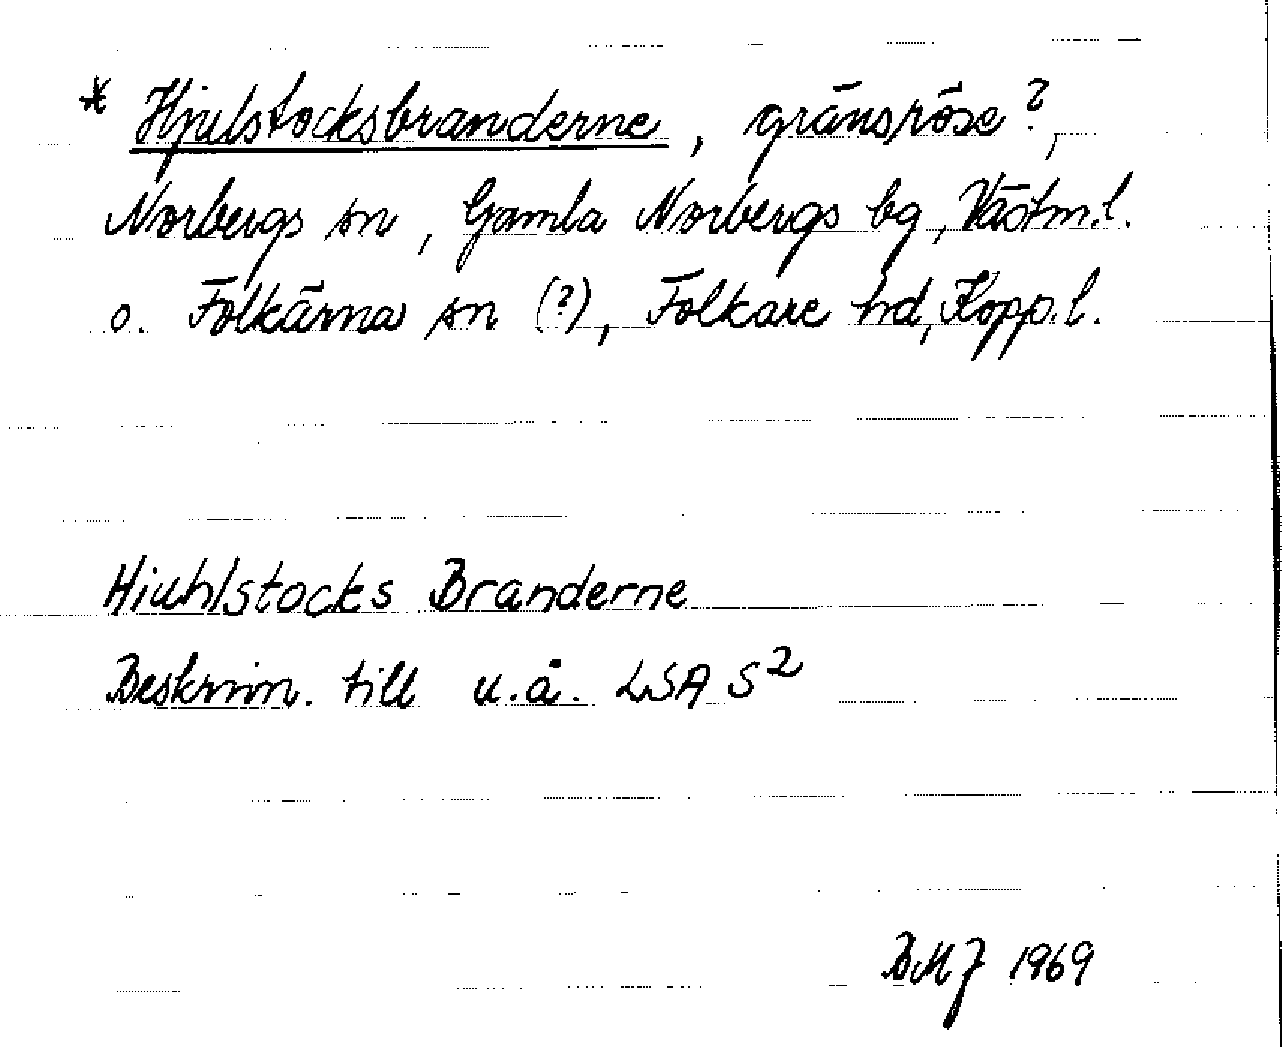 * Hjulstocksbranderne, gränsröse?,
Norbergs sn, Gamla Norbergs bg, Västm.l.
o. Folkärna sn (?), Folkare hd, Kopp.l.
Hiuhlstocks Branderne
Beskrivn. till u.å. LSA S²
BMJ 1969